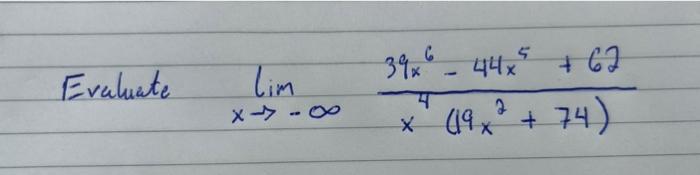 Evaluate lim x → -∞ (39x⁶ - 44x⁵ + 62) / (x⁴ (19x² + 74))